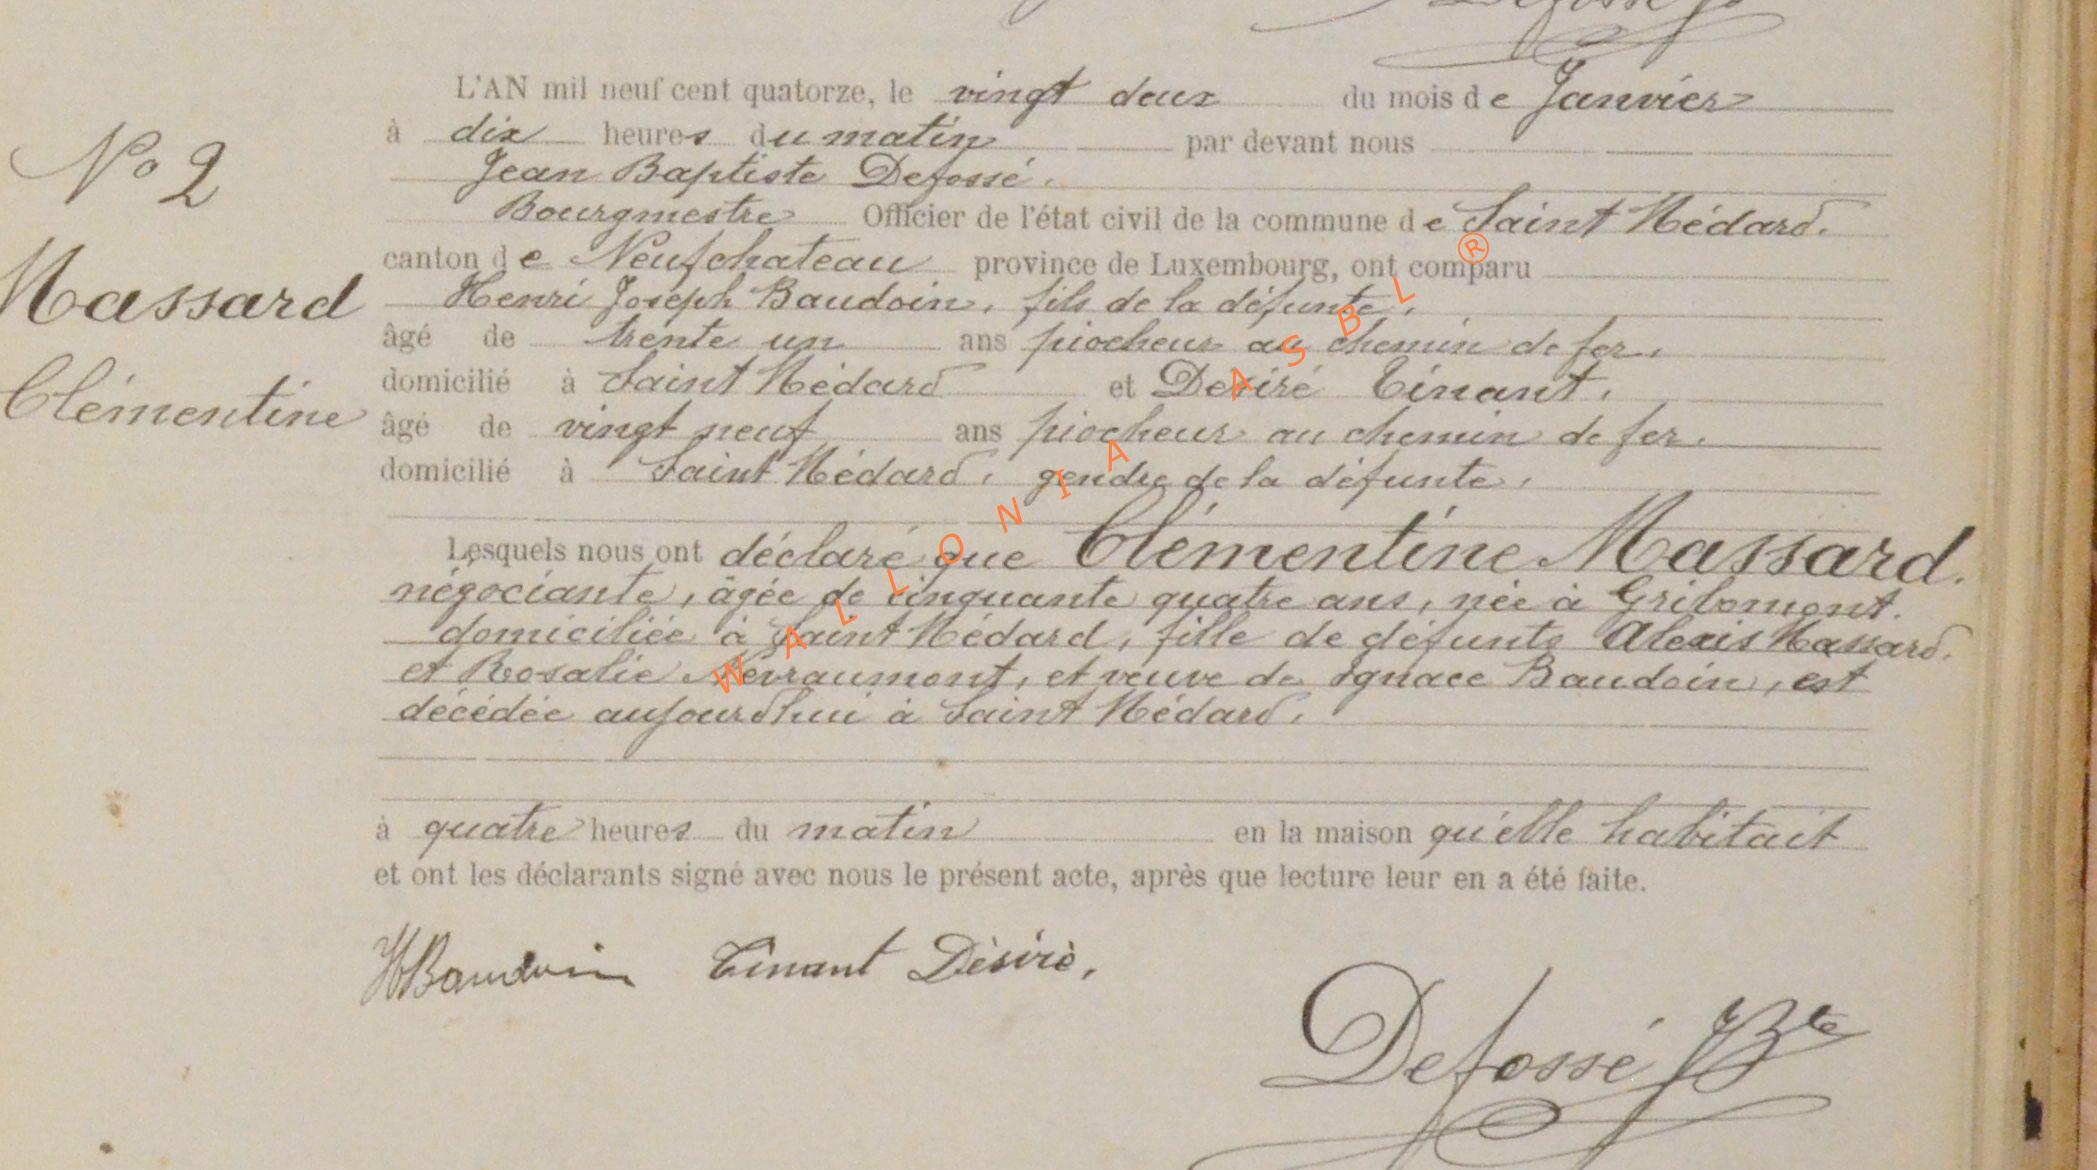 Defossé JB
L'AN mil neuf cent quatorze, le vingt deux du mois de Janvier
à dix heures du matin par devant nous
Jean Baptiste Defossé.
Bourgmestre Officier de l'état civil de la commune de Saint Médard.
canton de Neufchateau province de Luxembourg, ont comparu
Henri Joseph Baudoin, fils de la défunte,
âgé de trente un ans piocheur au chemin de fer,
domicilié à Saint Médard et Desiré Tinant,
âgé de vingt neuf ans piocheur au chemin de fer.
domicilié à Saint Médard, gendre de la défunte,
Lesquels nous ont déclaré que Clémentine Massard.
négociante, âgée de cinquante quatre ans, née à Gribomont.
domiciliée à Saint Médard, fille de défunts Alexis Massard.
et Rosalie Nevraumont, et veuve de Ignace Baudoin, est
décédée aujourd'hui à Saint Médard.
à quatre heures du matin en la maison qu'elle habitait
et ont les déclarants signé avec nous le présent acte, après que lecture leur en a été faite.
No 2
Massard
Clémentine
HBaudoin Tinant Dèsirè,
Defossé JBte
WALLONIA ASBL ®